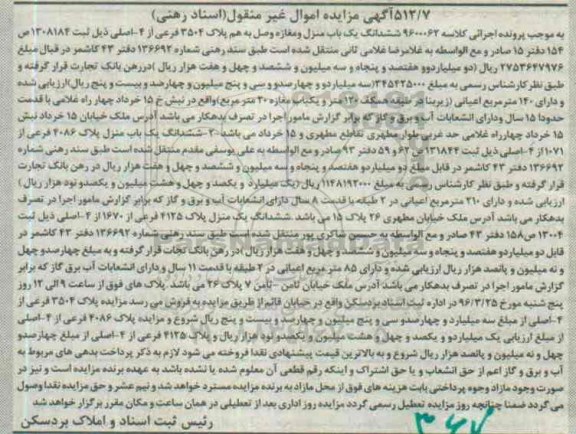 ۵۱۳/۷آگهی مزایده اموال غیر منقول(اسناد رهنی)
به موجب پرونده اجرائی کلاسه ۹۶۰۰۰۶۲ ششدانگ یک باب منزل ومغازه وصل به هم پلاک ۳۵۰۴ فرعی از ۴-اصلی ذیل ثبت ۱۳۰۸۱۸۴ص
۱۵۴ دفتر ۱۵ صادر و مع الواسطه به غلامرضا غلامی ثانی منتقل شده است طبق سند رهنی شماره ۱۳۶۶۹۲ دفتر ۴۳ کاشمر در قبال مبلغ
۲۷۵۳۶۴۷۹۷۶ ریال (دو میلیاردوو هفتصد و پنجاه و سه میلیون و ششصد و چهل و هفت هزار ریال )دررهن بانک تجارت قرار گرفته و
طبق نظر کارشناس رسمی به مبلغ ۳۴۵۴۳۵۰۰۰(سه میلیاردو و چهارصدو و سی و پنج میلیون و چهارصد و بیست و پنج ریال)ارزیابی شده
و دارای ۱۴۰ مترمربع اعیانی (زیربنا در طبقه همکف ۱۲۰ متر و یکباب مغازه ۲۰ متر مربع)واقع در نبش خ ۱۵ خرداد چهار راه غلامی با قدمت
حدودا ۱۵ سال ودارای انشعابات آب و برق و گاز که برابر گزارش مامور اجرا در تصرف بدهکار می باشد آدرس ملک خیابان ۱۵ خرداد نبش
۱۵ خرداد چهارراه غلامی حد غربی بلوار مطهری تقاطع مطهری و ۱۵ خرداد می باشد ۲-ششدانگ یک باب منزل پلاک ۴۰۸۶ فرعی از
۱۰۷۱از ۴-اصلی ذیل ثبت ۱۳۱۸۴۴ ص ۶۲ و ۵۹ دفتر ۹۳ صادر و مع الواسطه به علی یوسفی مقدم منتقل شده است طبق سند رهنی شماره
۱۳۶۶۹۲ دفتر ۴۳ کاشمر در قابل مبلغ دو میلیاردو هفتصد و پنجاه و سه میلیون و ششصد و چهل و هفت هزار ریال در رهن بانک تجارت
قرار گرفته و طبق نظر کارشناس رسمی به مبلغ ۱۱۴۸۱۹۲۰۰۰ ریال (یک میلیارد و یکصد و چهل و هشت میلیون و یکصدو نود هزار ریال )
ارزیابی شده و دارای ۲۱۰ مترمربع اعیانی در ۲ طبقه با قدمت ۸ سال دارای انشعابات آب و برق و گاز که برابر گزارش مامور اجرا در تصرف
بدهکار می باشد آدرس ملک خیابان مطهری ۲۶ پلاک ۱۵ می باشد .ششدانگ یک منزل پلاک ۴۱۲۵ فرعی از ۱۶۷۰ از ۴-اصلی ذیل ثبت
۱۳۰۰۴ ص۱۵۸ دفتر ۴۳ صادر و مع الواسطه به حسین شاکری پور منتقل شده است طبق سند رهنی شماره ۱۳۶۶۹۲ دفتر ۴۳ کاشمر در
قابل دو میلیاردو هفتصد و پنجاه و سه میلیون و ششصد و چهل و هفت هزار ریال )در رهن بانک تجات قرار گرفته و به مبلغ چهارصدو چهل
و نه میلیون و پانصد هزار ریال ارزیابی شده و دارای ۸۵ متر مربع اعیانی در ۲ طبقه با قدمت ۱۱ سال و دارای انشعابات آب برق گاز که برابر
گزارش مامور اجرا در تصرف بدهکار می باشد آدرس ملک خیابان ثامن -ثامن ۷ پلاک ۲۶ می باشد .پلاک های فوق از ساعت ۹ الی ۱۲ روز
پنج شنبه مورخ ۹۶/۳/۲۵ در اداره ثبت اسناد بردسکن واقع در خیابان قائم از طریق مزایده به فروش می رسد مزایده پلاک ۳۵۰۴ فرعی از
۴-اصلی از مبلغ سه میلیارد و چهارصدو سی و پنج میلیون و چهارصد و بیست و پنج ریال شروع و مزایده پلاک ۴۰۸۶ فرعی از ۴-اصلی
از مبلغ ارزیابی یک میلیاردو و یکصد و چهل و هشت میلیون و یکصدو نود هزار ریال و پلاک ۴۱۲۵ فرعی از ۴-اصلی از مبلغ چهارصدو
چهل و نه میلیون و پانصد هزار ریال شروع و به بالاترین قیمت پیشنهادی نقدا فروخته می شود لازم به ذکر پرداخت بدهی های مربوط به
آب و برق و گاز اعم از حق انشعاب و یا حق اشتراک و اینکه رقم قطعی آن معلوم شده یا نشده باشد به عهده برنده مزایده است و نیز در
صورت وجود مازاد وجوه پرداختی بابت هزینه های فوق از محل مازاد به برنده مزایده مسترد خواهد شد و نیم عشر و حق مزایده نقدا وصول
می گردد ضمنا چنانچه روز مزایده تعطیل رسمی گردد مزایده روز اداری بعد از تعطیلی در همان ساعت و مکان مقرر برگزار خواهد شد
رئیس ثبت اسناد و املاک بردسکن